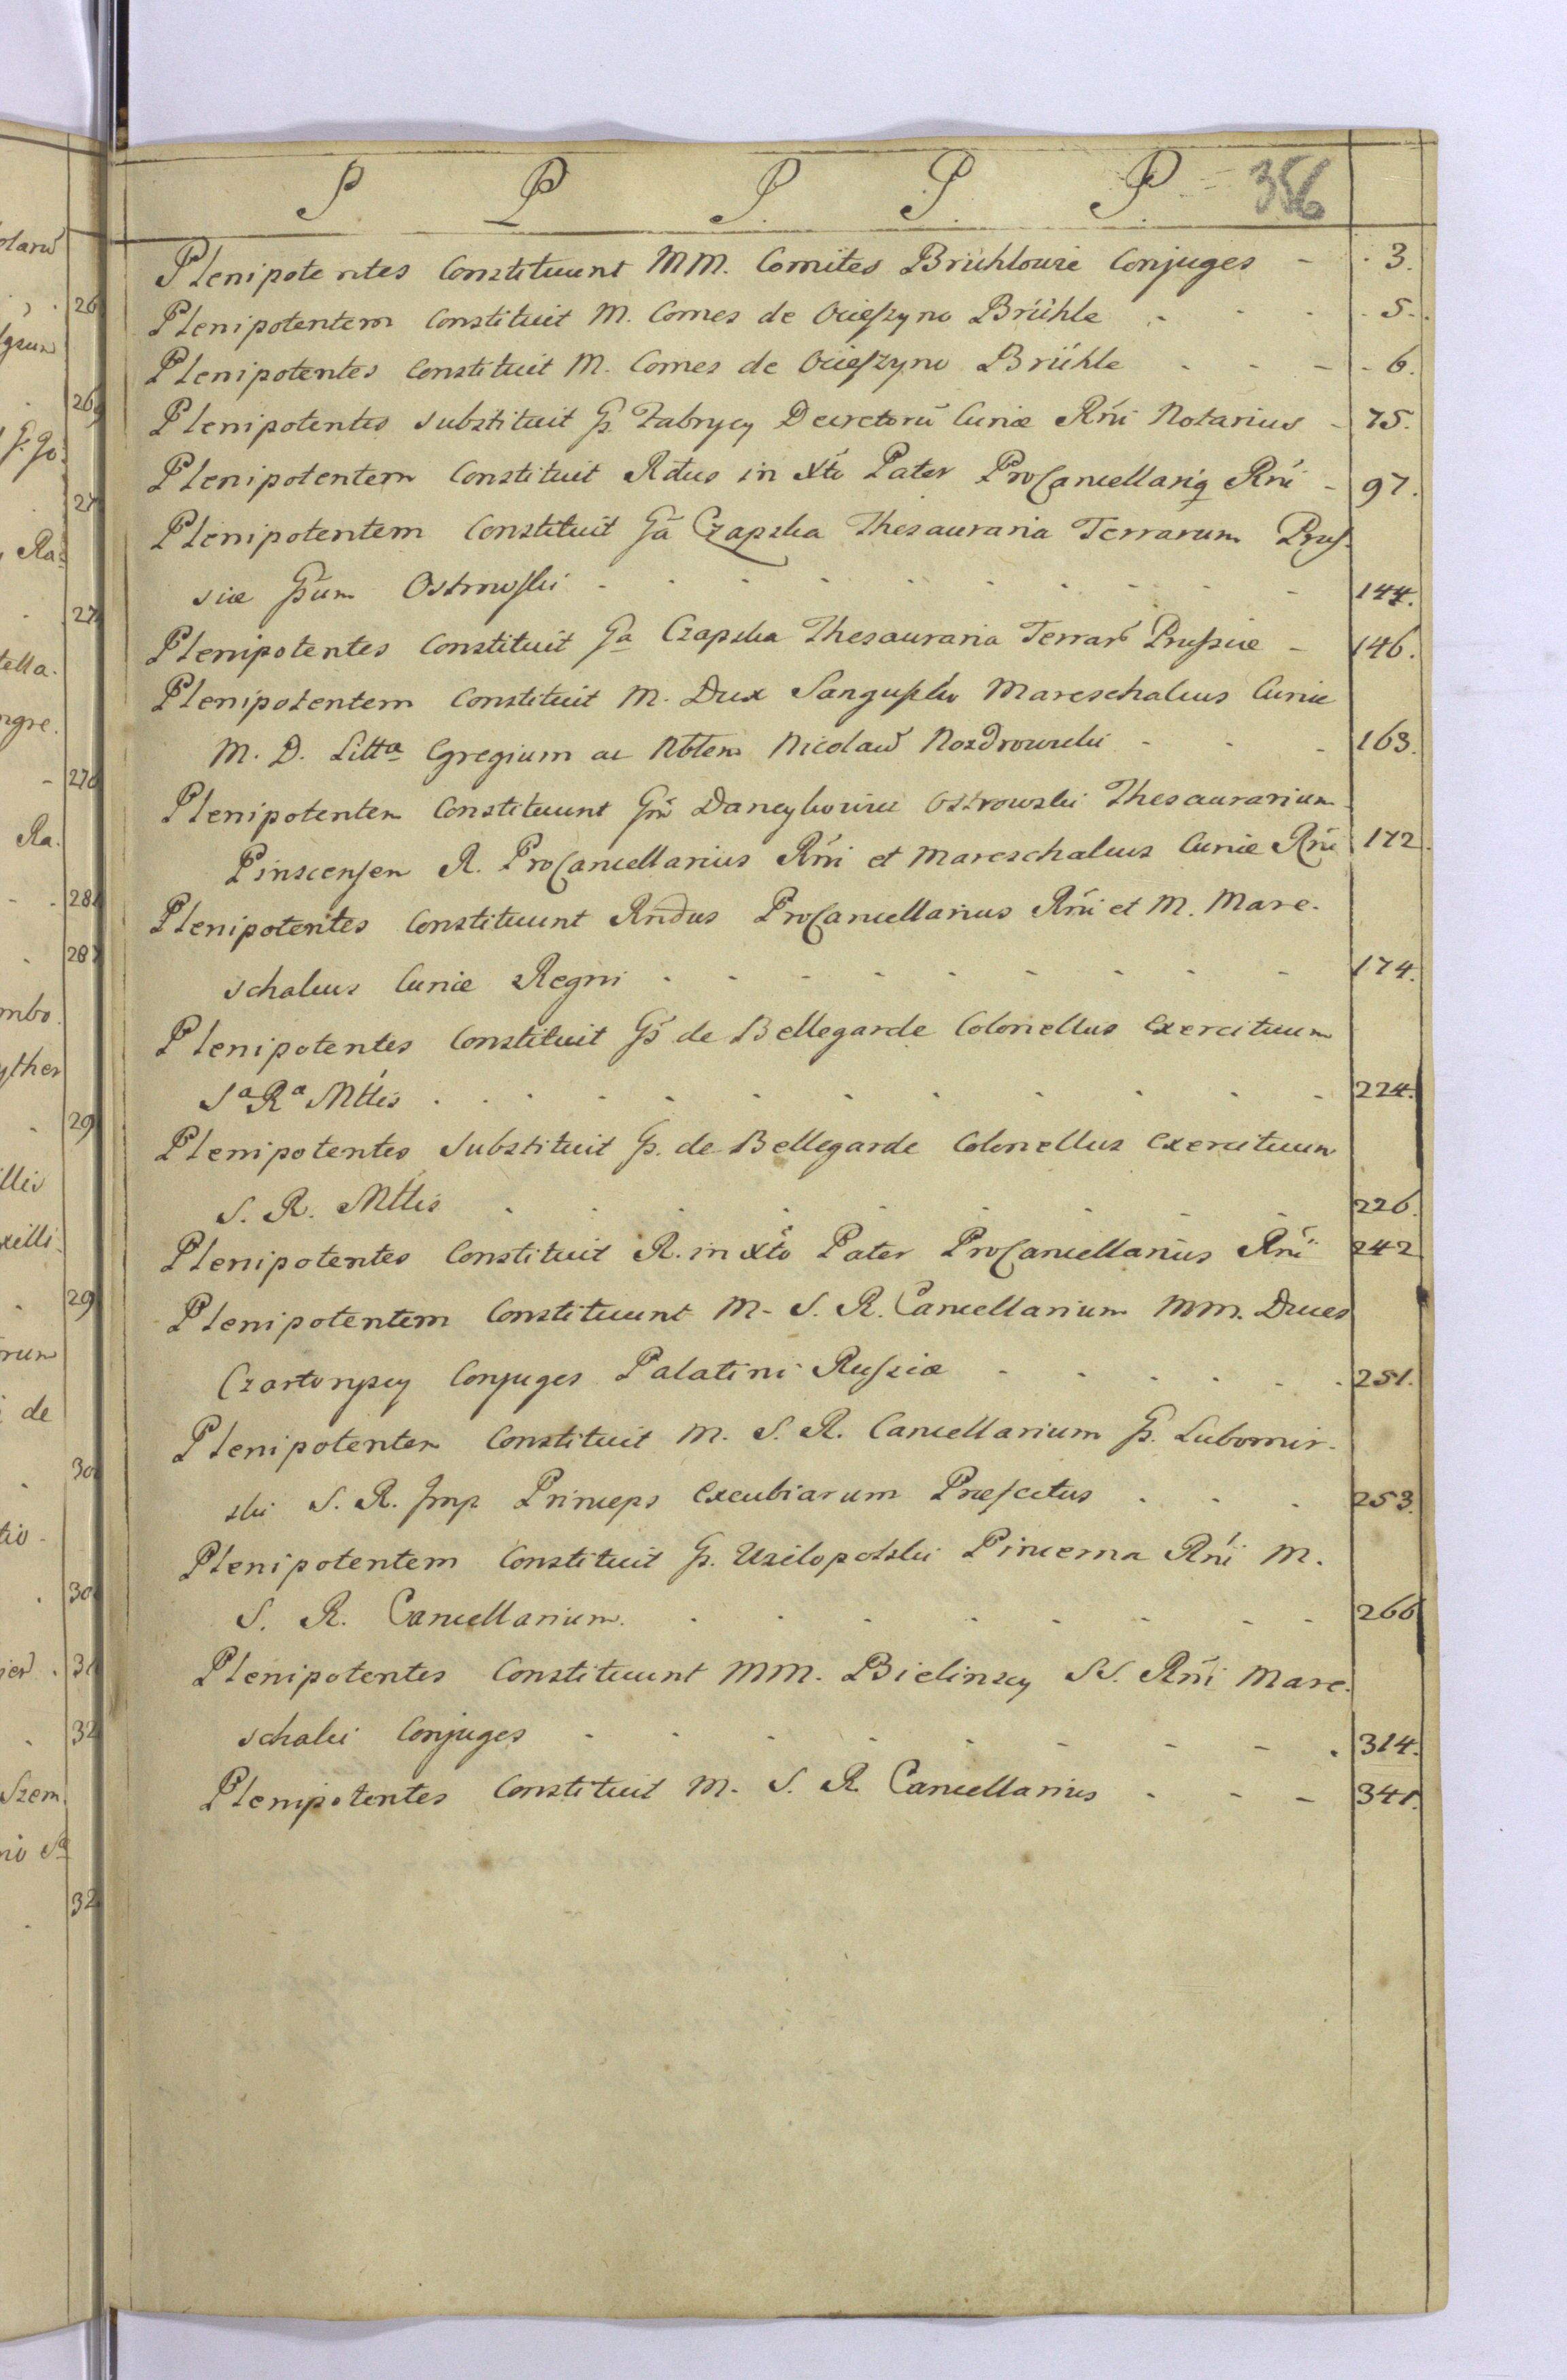 P P P. P. P. 356
Plenipotentes Constituunt MM. Comites Brühlowie Conjuges - 3.
Plenipotentem Constituit M. Comes de Ocieszyno Brühle - - - 5.
Plenipotentes Constituit M. Comes de Ocieszyno Brühle - - - 6.
Plenipotentes substituit G. Fabrycy Decretorū Curiæ Rńi Notarius - 75.
Plenipotentem Constituit Rdus in Xto Pater ProCancellariq Rńi - 97.
Plenipotentem Constituit Ga Czapska Thesauraria Terrarum Prus-
siæ Gum Ostrowski - - - - - - - - - 144.
Plenipotentes Constituit Ga Czapska Thesauraria Terrar Prussiæ - 146.
Plenipotentem Constituit M. Dux Sangusko Mareschalcus Curiæ
M. D. Litta Egregium ac Nblem Nicolaū Nozdrowicki - - - 163.
Plenipotentem Constituunt Gm Ostrowski Thesaurarium
Pinscensem R. ProCancellarius Rńi et Mareschalcus Curiæ Rńi 172.
Plenipotentes Constituunt Rndus ProCancellarius Rńi et M. Mare-
schalcus Curiæ Regni - - - - - - - - 174.
Plenipotentes Constituit G de Bellegarde Colonellus Exercituum
Sa Ra Mttis - - - - - - - - - - 224.
Plenipotentes Substituit G. de Bellegarde Colonellus Exercituum
S. R. Mttis - - - - - - - - - 226.
Plenipotentes Constituit R. in Xto Pater ProCancellarius Rńi 242
Plenipotentem Constituunt M. S. R. Cancellarium MM. Duces
Czartoryscy Conjuges Palatini Russiæ - - - - - 251.
Plenipotentem Constituit M. S. R. Cancellarium G. Lubomir-
ski S. R. Imp Princeps Excubiarum Præfectus - - - 253.
Plenipotentem Constituit G. Wielopolski Pincerna Rńi M.
S. R. Cancellarium. - - - - - - - - 266
Plenipotentes Constituunt MM. Bielinscy SS. Rńi Mare-
schalci Conjuges - - - - - - - - - 314.
Plenipotentes Constituit M. S. R. Cancellarius - - - 341.